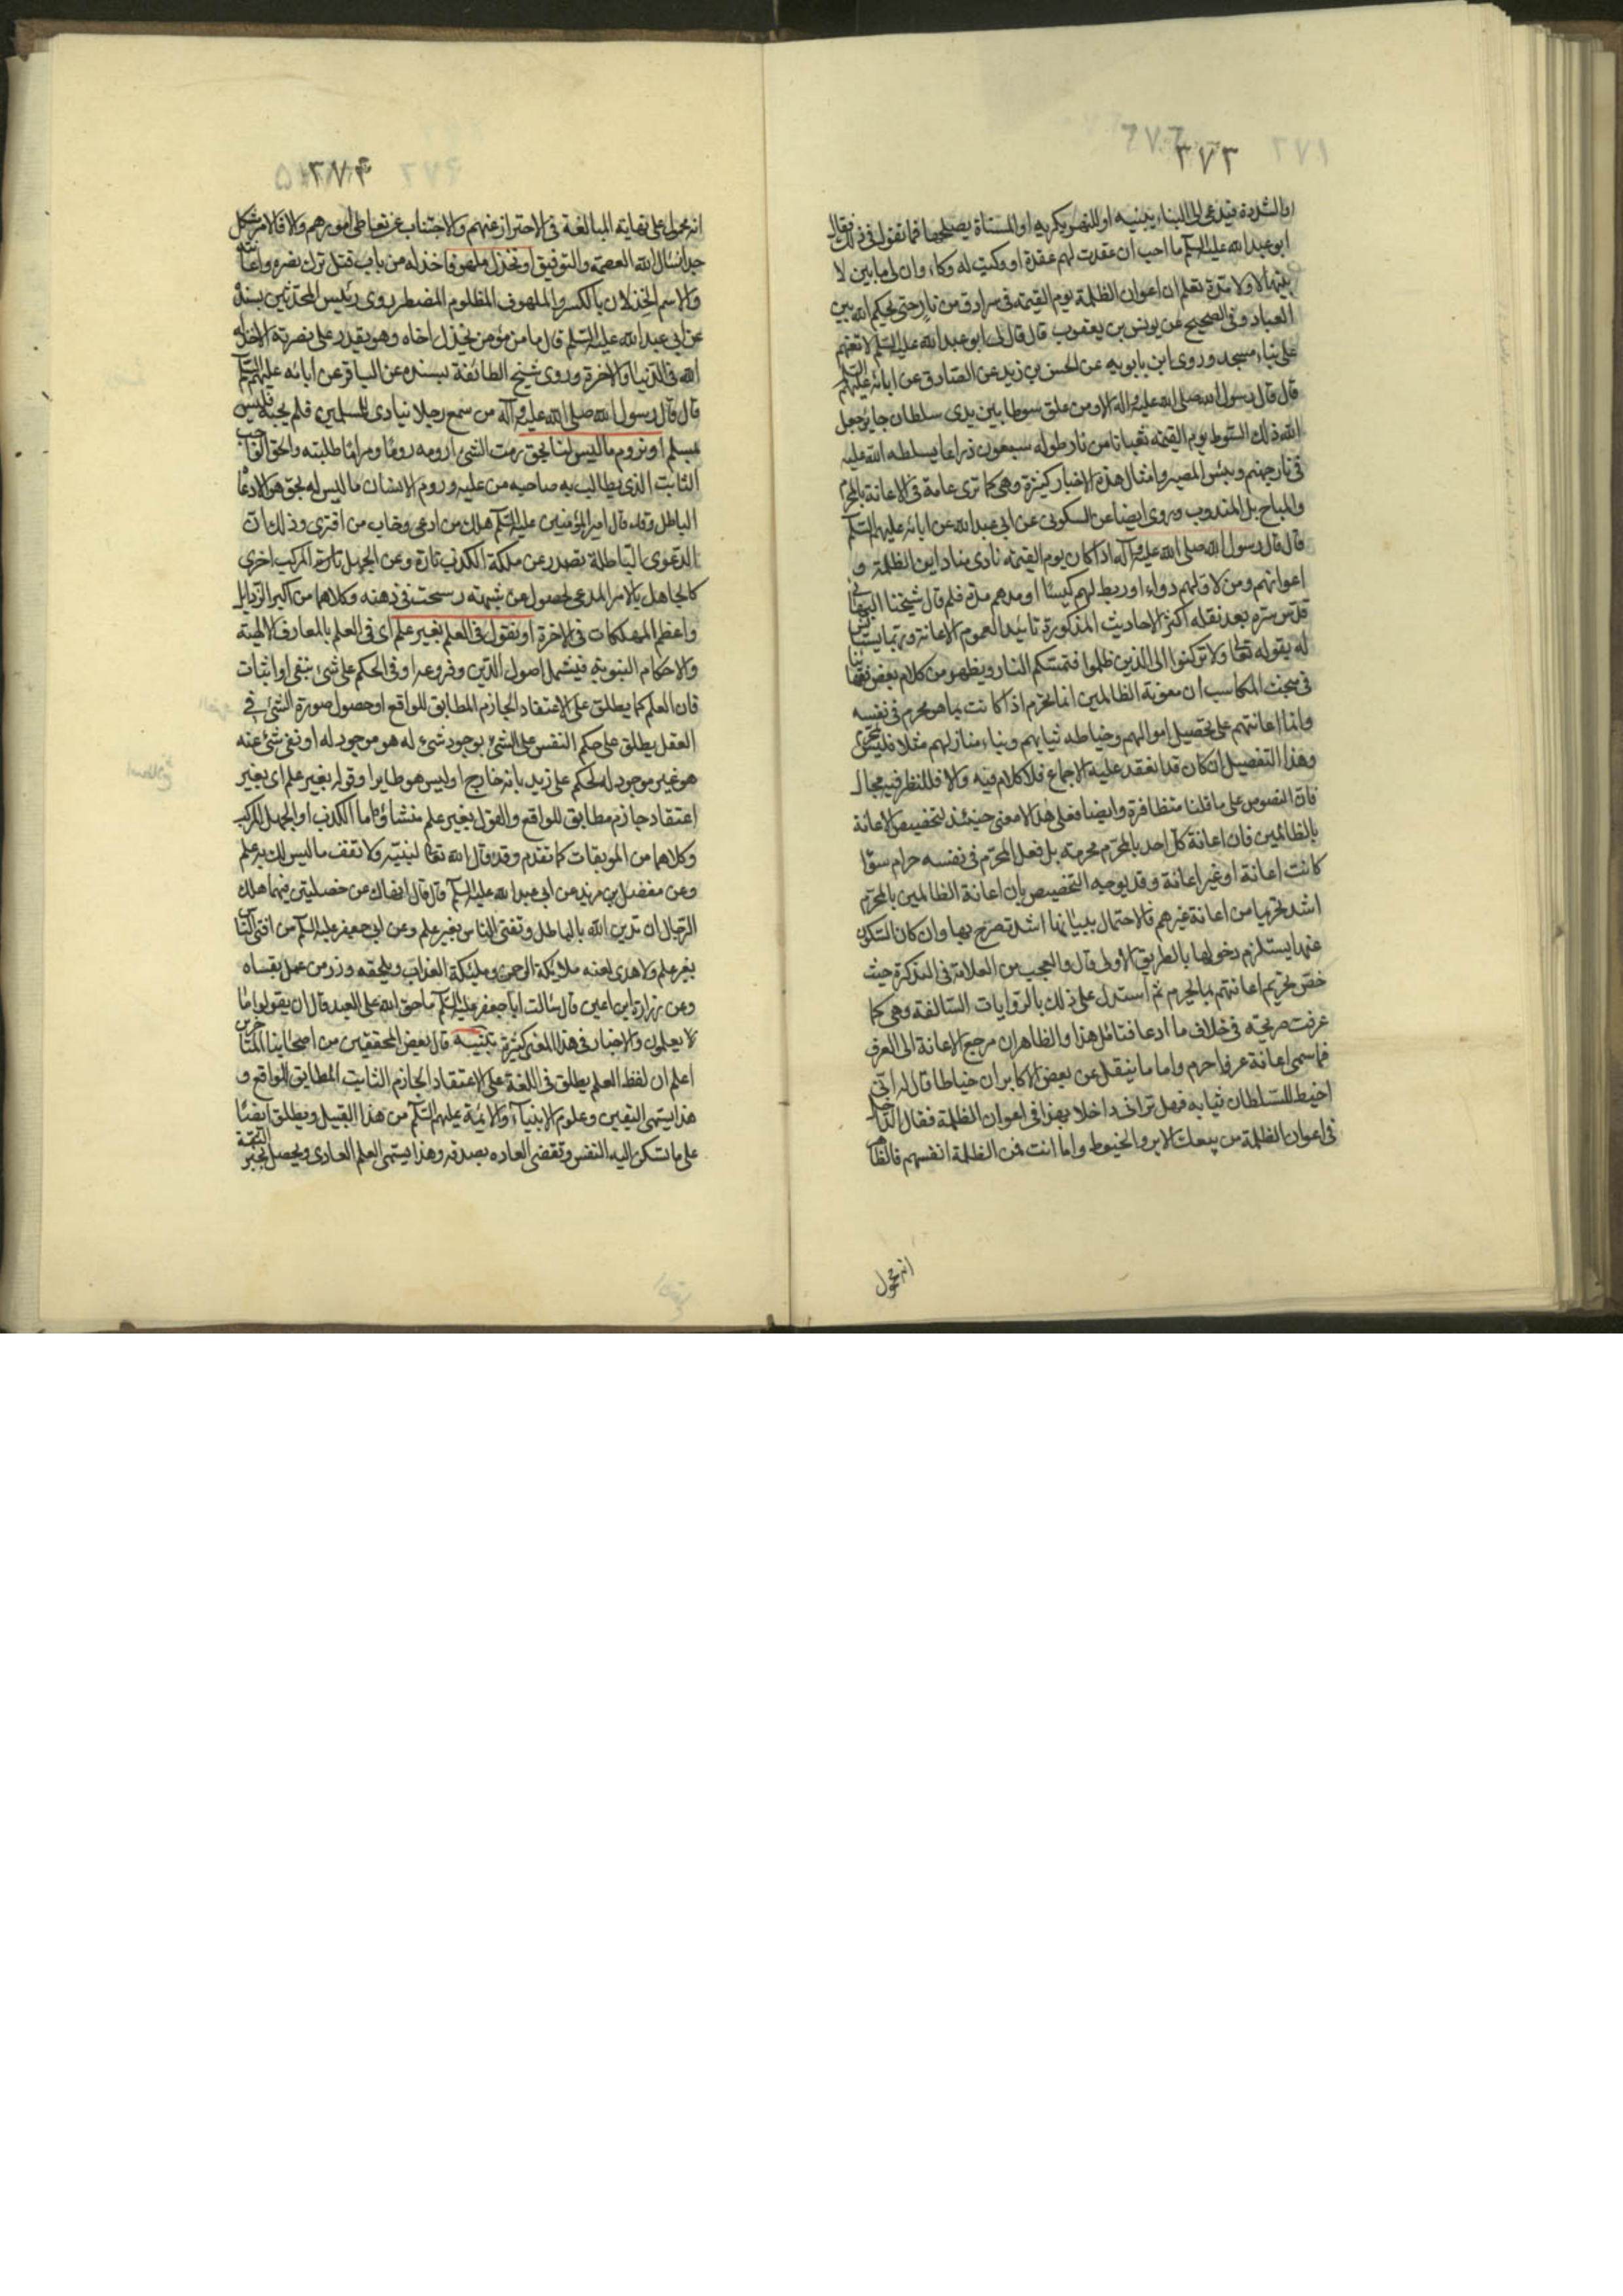 ٣٧٣
او الشدة فيدعى الى البناء يبنيه او للنهر يكريه او المسناة يصلحها فما تقول في ذلك فقال
ابو عبد الله عليه السلم ما احب ان عقدت لهم عقدة او وكيت له وكاء وان لى ما بين لا
بتيها لا ولا مدة بقلم ان اعوان الظلمة يوم القيمة في سرادق من نار حتى يحكم الله بين
العباد وفي الصحيح عن يونس بن يعقوب قال قال لى ابو عبد الله عليه السلم لا تعنهم
على بناء مسجد وروى ابن بابويه عن الحسن بن زيد عن الصادق عن ابائه عليهم السلم
قال قال رسول الله صلى الله عليه واله الا ومن علق سوطا بين يدى سلطان جاير جعل
الله ذلك السوط يوم القيمة ثعبانا من نار طوله سبعون ذراعا يسلطه الله عليه
في نار جهنم وبئس المصير وامثال هذه الاخبار كثيرة وهي كما ترى عامة في الاعانة بالمحرم
والمباح بل المندوب وروى ايضا عن السكونى عن ابي عبد الله عن ابائه عليهم السلم
قال قال رسول الله صلى الله عليه وآله اذا كان يوم القيمة نادى مناد اين الظلمة و
اعوانهم ومن لاق لهم دواة او ربط لهم كيسا او مد لهم مدة قلم قال شيخنا البهائى
قدس سره بعد نقله اكثر الاحاديث المذكورة تائيد العموم الاعانة وربما يستانس
له بقوله تعالى ولا تركنوا الى الذين ظلموا فتمسكم النار ويظهر من كلام بعض فقهائنا
في مبحث المكاسب ان معونة الظالمين انما تحرم اذا كانت بما هو محرم في نفسه
واما اعانتهم على تحصيل اموالهم وخياطه ثيابهم وبناء منازلهم مثلا فليس بمحرم
وهذا التفصيل ان كان قد انعقد عليه الاجماع فلا كلام فيه والا فللنظر فيه مجال
فان النصوص على ما قلنا متظافرة وايضا فعلى هذا لا معنى حينئذ لتخصيص الاعانة
بالظالمين فان اعانة كل احد بالمحرم محرمة بل فعل المحرم في نفسه حرام سواء
كانت اعانة او غير اعانة وقد يوجه التخصيص بان اعانة الظالمين بالمحرم
اشد تحريما من اعانة غيرهم فالاحتمال ببيانها اشد تصرح بها وان كان السكوت
عنها يستلزم دخولها بالطريق الاولى قال والعجب من العلامة في التذكرة حيث
خص تحريم اعانتهم بما يحرم ثم استدل على ذلك بالروايات السالفة وهي كما
عرفت صريحة في خلاف ما ادعا فتامل هذا والظاهر ان مرجع الاعانة الى العرف
فما سمى اعانة عرفا حرم واما ما ينقل عن بعض الاكابر ان خياطا قال له انى
اخيط للسلطان ثيابه فهل ترانى داخلا بهذا في اعوان الظلمة فقال الداخل
في اعوان الظلمة من يبيعك الابر والخيوط واما انت فمن الظلمة انفسهم فالظاهر
انه محمول
٣٧٤
انه محمول على نهاية المبالغة في الاحتراز عنهم والاجتناب عن تعاطى امورهم والا فالامر مشكل
جدا نسال الله العصمة والتوفيق او نخذل ملهوفا خذله من باب قتل ترك نصره واعانته
والاسم الخذلان بالكسر والملهوف المظلوم المضطر روى رئيس المحدثين بسنده
عن ابي عبد الله عليه السلم قال ما من مؤمن يخذل اخاه وهو يقدر على نصرته الا خذله
الله في الدنيا والاخرة وروى شيخ الطائفة بسنده عن الباقر عن ابائه عليهم السلم
قال قال رسول الله صلى الله عليه وآله من سمع رجلا ينادى للمسلمين فلم يجبه فليس
بمسلم او نروم ما ليس لنا بحق رمت الشئ ارومه روما ومراما طلبته والحق الواجب
الثابت الذى يطالب به صاحبه من عليه وروم الانسان ما ليس له بحق هو الادعاء
الباطل وقد قال امير المؤمنين عليه السلم هلك من ادعى وخاب من افترى وذلك ان
الدعوى الباطلة تصدر عن ملكة الكذب تارة وعن الجهل المركب اخرى
كالجاهل بالامر المدعى لحصول عن شبهته رسخت في ذهنه وكلاهما من اكبر الرذايل
واعظم المهلكات في الاخرة او نقول في العلم بغير علم اى في العلم بالمعارف الالهية
والاحكام النبوية فيشمل اصول الدين وفروعه او في الحكم على شئ بنفى او اثبات
فان العلم كما يطلق على الاعتقاد الجازم المطابق للواقع او حصول صورة الشئ في
العقل يطلق على حكم النفس على الشئ بوجود شئ له هو موجود له او نفى شئ عنه
هو غير موجود له كالحكم على زيد بانه خارج او ليس هو طايرا وقوله بغير علم اى بغير
اعتقاد جازم مطابق للواقع والقول بغير علم منشاؤه اما الكذب او الجهل المركب
وكلاهما من الموبقات كما تقدم وقد قال الله تعالى لنبيه ولا تقف ما ليس لك به علم
وعن مفضل بن مزيد عن ابي عبد الله عليه السلم قال قال انهاك عن خصلتين فيهما هلك
الرجال ان تدين الله بالباطل وتفتى الناس بغير علم وعن ابي جعفر عليه السلم من افتى الناس
بغير علم ولا هدى لعنه ملايكة الرحمن وملئكة العذاب ويلحقه وزر من عمل بفتياه
وعن زرارة ابن اعين قال سالت ابا جعفر عليه السلم ما حق الله على العبد قال ان يقولوا ما
لا يعلمون والاخبار في هذا المعنى كثيرة تنبيه قال بعض المحققين من اصحابنا المتاخرين
اعلم ان لفظ العلم يطلق في اللغة على الاعتقاد الجازم الثابت المطابق للواقع و
هذا يسمى اليقين وعلوم الانبياء والائمة عليهم السلم من هذا القبيل ويطلق ايضا
على ما تسكن اليه النفس وتقضى العاده بصدقه وهذا يسمى العلم العادى ويحصل بخبر الثقة